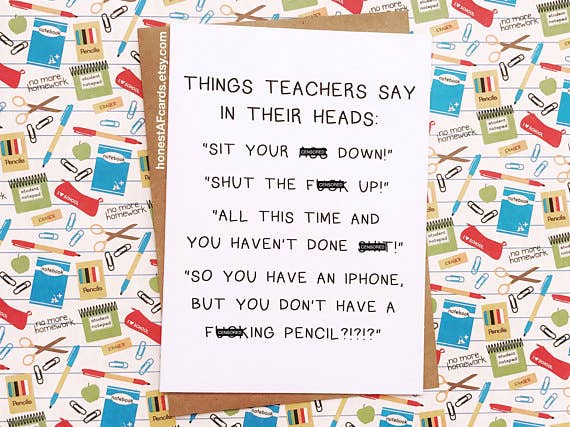 THINGS TEACHERS SAY
IN THEIR HEADS:
"SIT YOUR CENSORED DOWN!"
"SHUT THE FCENSORED UP!"
"ALL THIS TIME AND
YOU HAVEN'T DONE CENSOREDT!"
"SO YOU HAVE AN IPHONE,
BUT YOU DON'T HAVE A
FCENSOREDKING PENCIL?!?!?"
honestAFcards.etsy.com
notebook
Pencils
no more
homework
student
notepad
I ♥ SCHOOL
ERASER